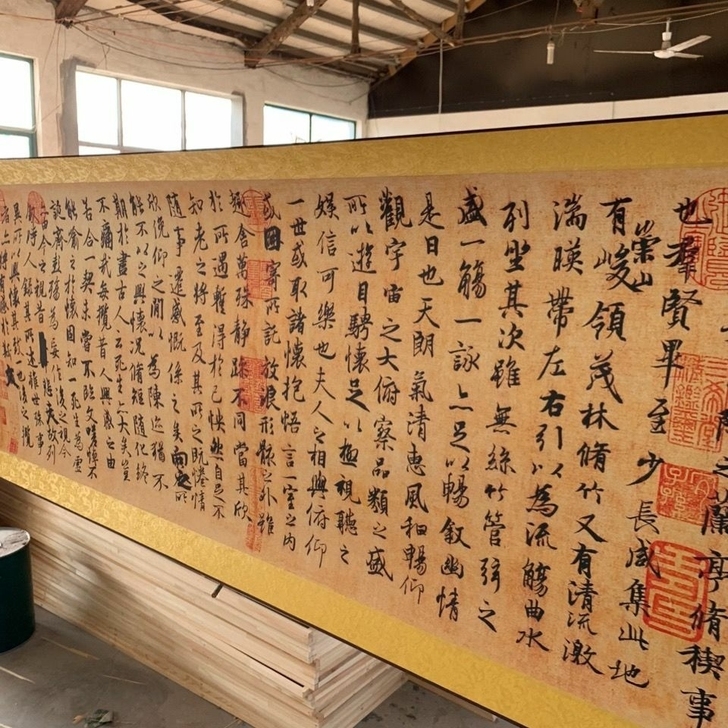 之蘭亭脩稧事
也羣賢畢至少長咸集此地
有崇山峻領茂林脩竹又有清流激
湍暎帶左右引以為流觴曲水
列坐其次雖無絲竹管弦之
盛一觴一詠亦足以暢敘幽情
是日也天朗氣清惠風和暢仰
觀宇宙之大俯察品類之盛
所以遊目騁懷足以極視聽之
娛信可樂也夫人之相與俯仰
一世或取諸懷抱悟言一室之內
或因寄所託放浪形骸之外雖
趣舍萬殊靜躁不同當其欣
於所遇暫得於己怏然自足不
知老之將至及其所之既惓情
隨事遷感慨係之矣向之所
欣俛仰之閒以為陳迹猶不
能不以之興懷況脩短隨化終
期於盡古人云死生亦大矣豈
不痛哉每攬昔人興感之由
若合一契未嘗不臨文嗟悼不
能喻之於懷固知一死生為虛
誕齊彭殤為妄作後之視今
亦由今之視昔悲夫故列
敘時人錄其所述雖世殊事
異所以興懷其致一也後之攬